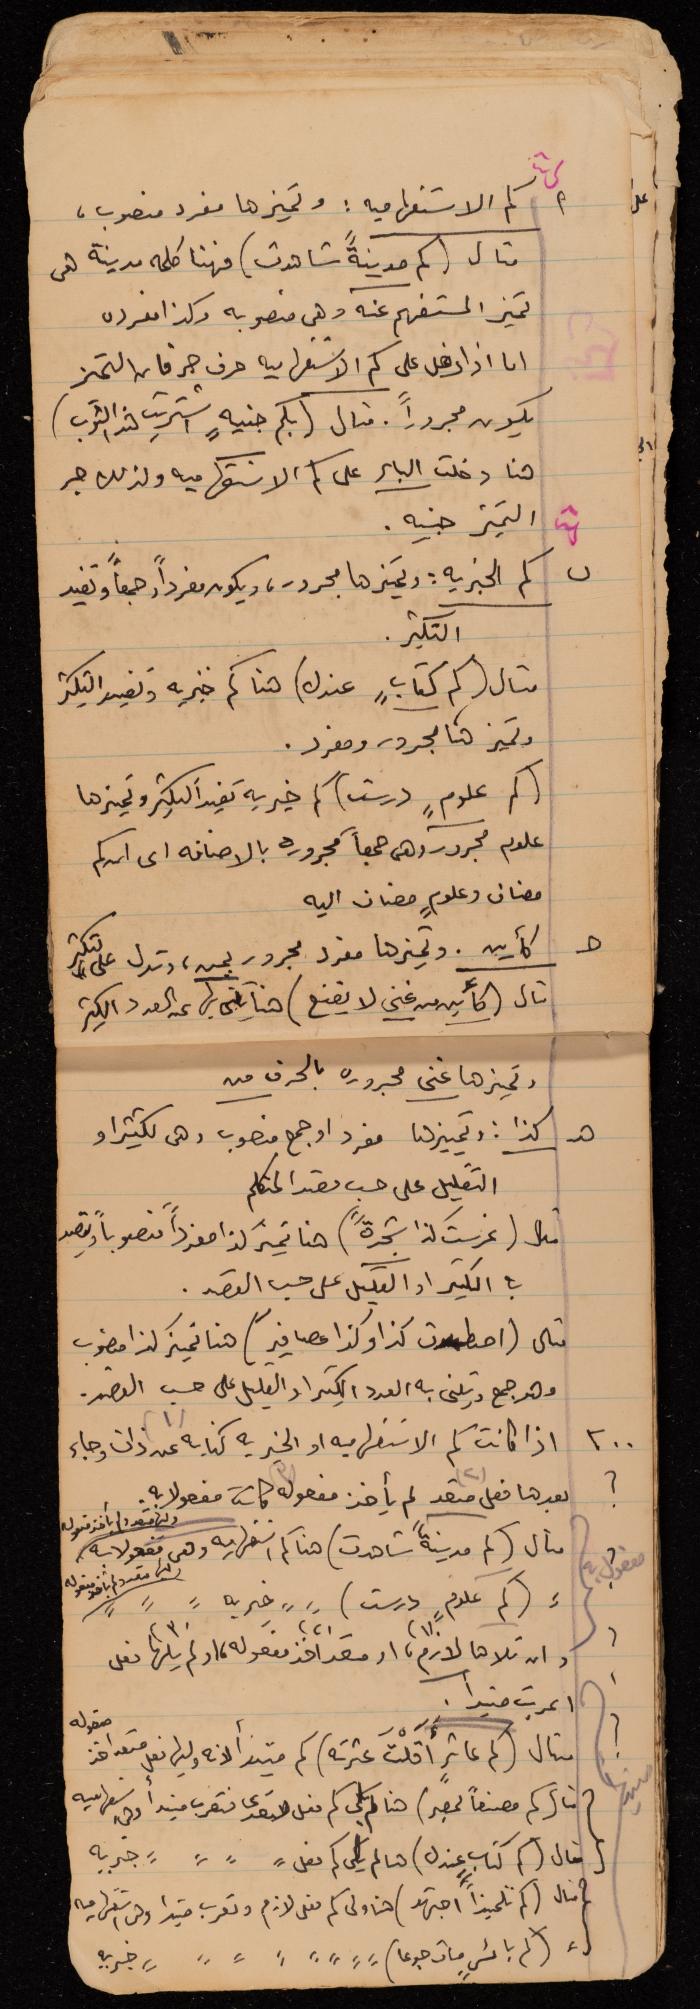 ٢ كم الاستفهاميه : وتميزها مفرد منصوب ،
مثال ( كم مدينةً شاهدت ) فهنا كلمه مدينة هى
تميز المستفهم عنه وهى منصوبه وكذا مفرده
اما اذا دخل على كم الاستفهاميه حرف جر فان التميز
يكون مجروراً . مثال ( بكم جنيهٍ اشتريت هذا الثوب )
هنا دخلت الباء على كم الاستفهاميه ولذلك جر
التميز جنيه .
ب كم الخبريه : وتميزها مجرور ، ويكون مفرداً وجمعاً وتفيد
التكثير .
مثال ( كم كتابٍ عندك ) هنا كم خبريه وتفيد التكثير
وتميز هنا مجرور ومفرد .
( كم علومٍ درست ) كم خبريه تفيد التكثير وتميزها
علوم مجرور وهى جمعاً مجروره بالاضافه اى ان كم
مضاف وعلومٍ مضاف اليه
ح كأين . وتميزها مفرد مجرور بمن ، وتدل على التكثير
مثال ( كأين من غنيٍ لا يقنع ) هنا يكنى بها عن العدد الكثير
وتميزها غنى مجروره بالحرف من
هـ كذا : وتمييزها مفرد او جمع منصوب وهى لكثير او
التقليل على حسب مقصد المتكلم
مثال ( غرست كذا شجرةً ) هنا تميز كذا مفرداً منصوباً ويقصد
به الكثير او القليل على حسب القصد .
مثال ( اصطدت كذا وكذا عصافير ) هنا تميز كذا منصوب
وهو جمع ويكنى به العدد الكثير او القليل على حسب القصد .
٢٠٠ اذا كانت كم الاستفهاميه او الخبريه كنايه عن ذات وجاء (١)
? بعدها فعل متعد (٢) لم يأخذ مفعوله (٣) كانت مفعولا به .
وليها متعد لم يأخذ مفعوله
مثال ( كم مدينةً شاهدت ) هنا كم استفهاميه وهى مفعولا به
وليها متعد لم يأخذ مفعوله
مفعول به
〃 ( كم علومٍ درست ) 〃 〃 خبريه 〃 〃 〃
وان تلاها لازم (١) ، او متعد اخذ مفعوله (٢) ، او لم يلها (٣) فعل
اعربت مبتدأ .
مثال ( كم عاثرٍ أقلتَ عثرته ) كم مبتدأ لانه وليها فعل متعد اخذ مفعوله
مبتدأ
مثال ( كم مصنعاً بمصر ) هنا لم يلى كم فعل فتعرب مبتدأ وهى استفهاميه
مثال ( كم كتابٍ عندك ) هنا لم يلى كم فعل 〃 〃 〃 〃 خبريه
مثال ( كم تلميذاً اجتهد ) هنا ولى كم فعل لازم وتعرب مبتدا وهى استفهاميه
〃 ( كم بائسٍ مات جوعا ) 〃 〃 〃 〃 〃 〃 〃 〃 خبريه